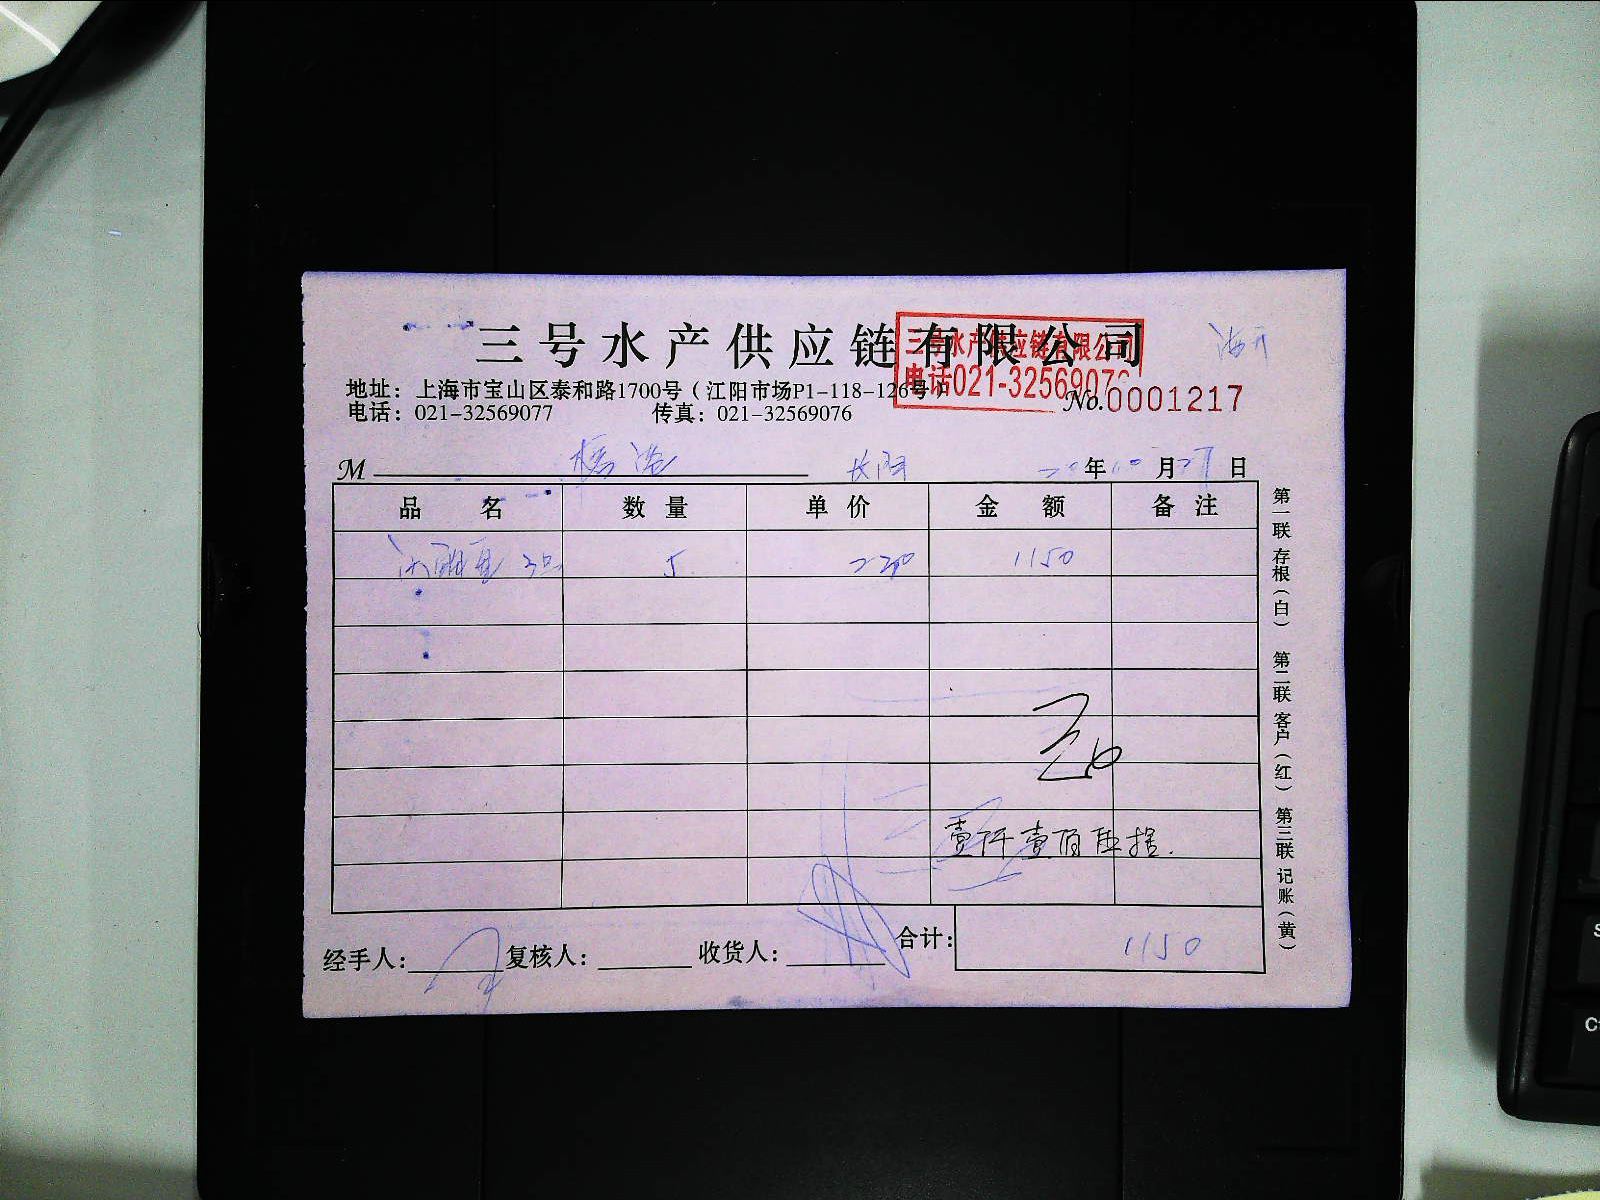 三号水产供应链有限公司
三号水产供应链有限公司
电话021-32569076
地址：上海市宝山区泰和路1700号（江阳市场P1-118-126号）
电话：021-32569077 传真：021-32569076
No.0001217
M 杨浩 长阳 20年10月27日
品名 数量 单价 金额 备注
5 230 1150
壹仟壹佰伍拾.
经手人： 复核人： 收货人： 合计： 1150
第一联 存根（白） 第二联 客户（红） 第三联 记账（黄）